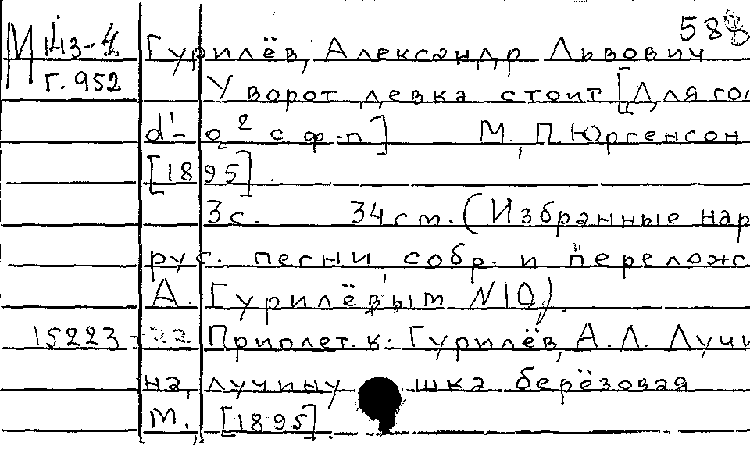 588
М Из-4 Гурилёв, Александр Львович
Г. 952 У ворот девка стоит [Для гол
d¹-a² с ф-п] М., П. Юргенсон
[1895].
3с. 34см. (Избранные нар
рус. песни, собр. и перелож
А. Гурилёвым N10).
15223 Приплет. к: Гурилёв, А. Л. Лучи
на, лучинушка берёзовая
М., [1895].